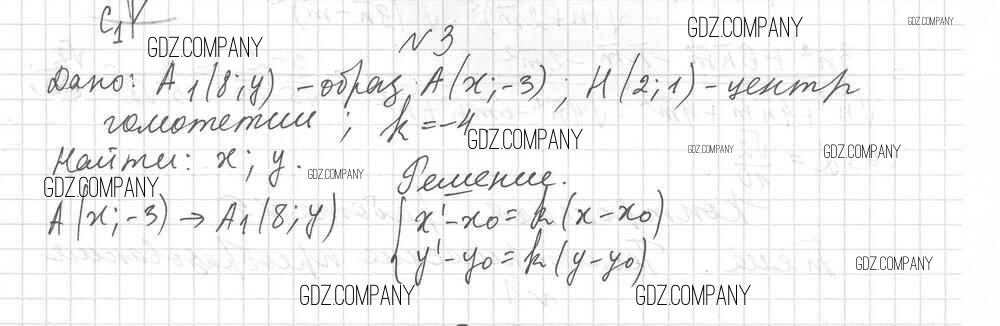 C₁
GDZ.COMPANY GDZ.COMPANY GDZ.COMPANY
N 3
Дано: A₁(8; y) – образ A(x; -3); H(2; 1) – центр
гомотетии; k = -4
GDZ.COMPANY GDZ.COMPANY GDZ.COMPANY
Найти: x; y.
GDZ.COMPANY GDZ.COMPANY
Решение.
A(x; -3) → A₁(8; y) { x' - x₀ = k(x - x₀)
y' - y₀ = k(y - y₀)
GDZ.COMPANY
GDZ.COMPANY GDZ.COMPANY